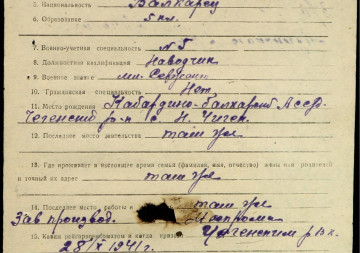 5. Национальность Балкарец
6. Образование 5 кл.
7. Военно-учетная специальность №5
8. Должностная квалификация Наводчик
9. Военное звание мл. Сержант
10. Гражданская специальность Нет
11. Место рождения Кабардино-Балкарск АССР
Чегемский р-н с. Н. Чегем
12. Последнее место жительства там же
13. Где проживает в настоящее время семья (фамилия, имя, отчество) жены или родителей
и точный их адрес там же
14. Последнее место работы и там же
Зав производ. Моспромк
15. Каким райвоенкоматом и когда призван Чегемским рвк.
28/IX 1941 г.